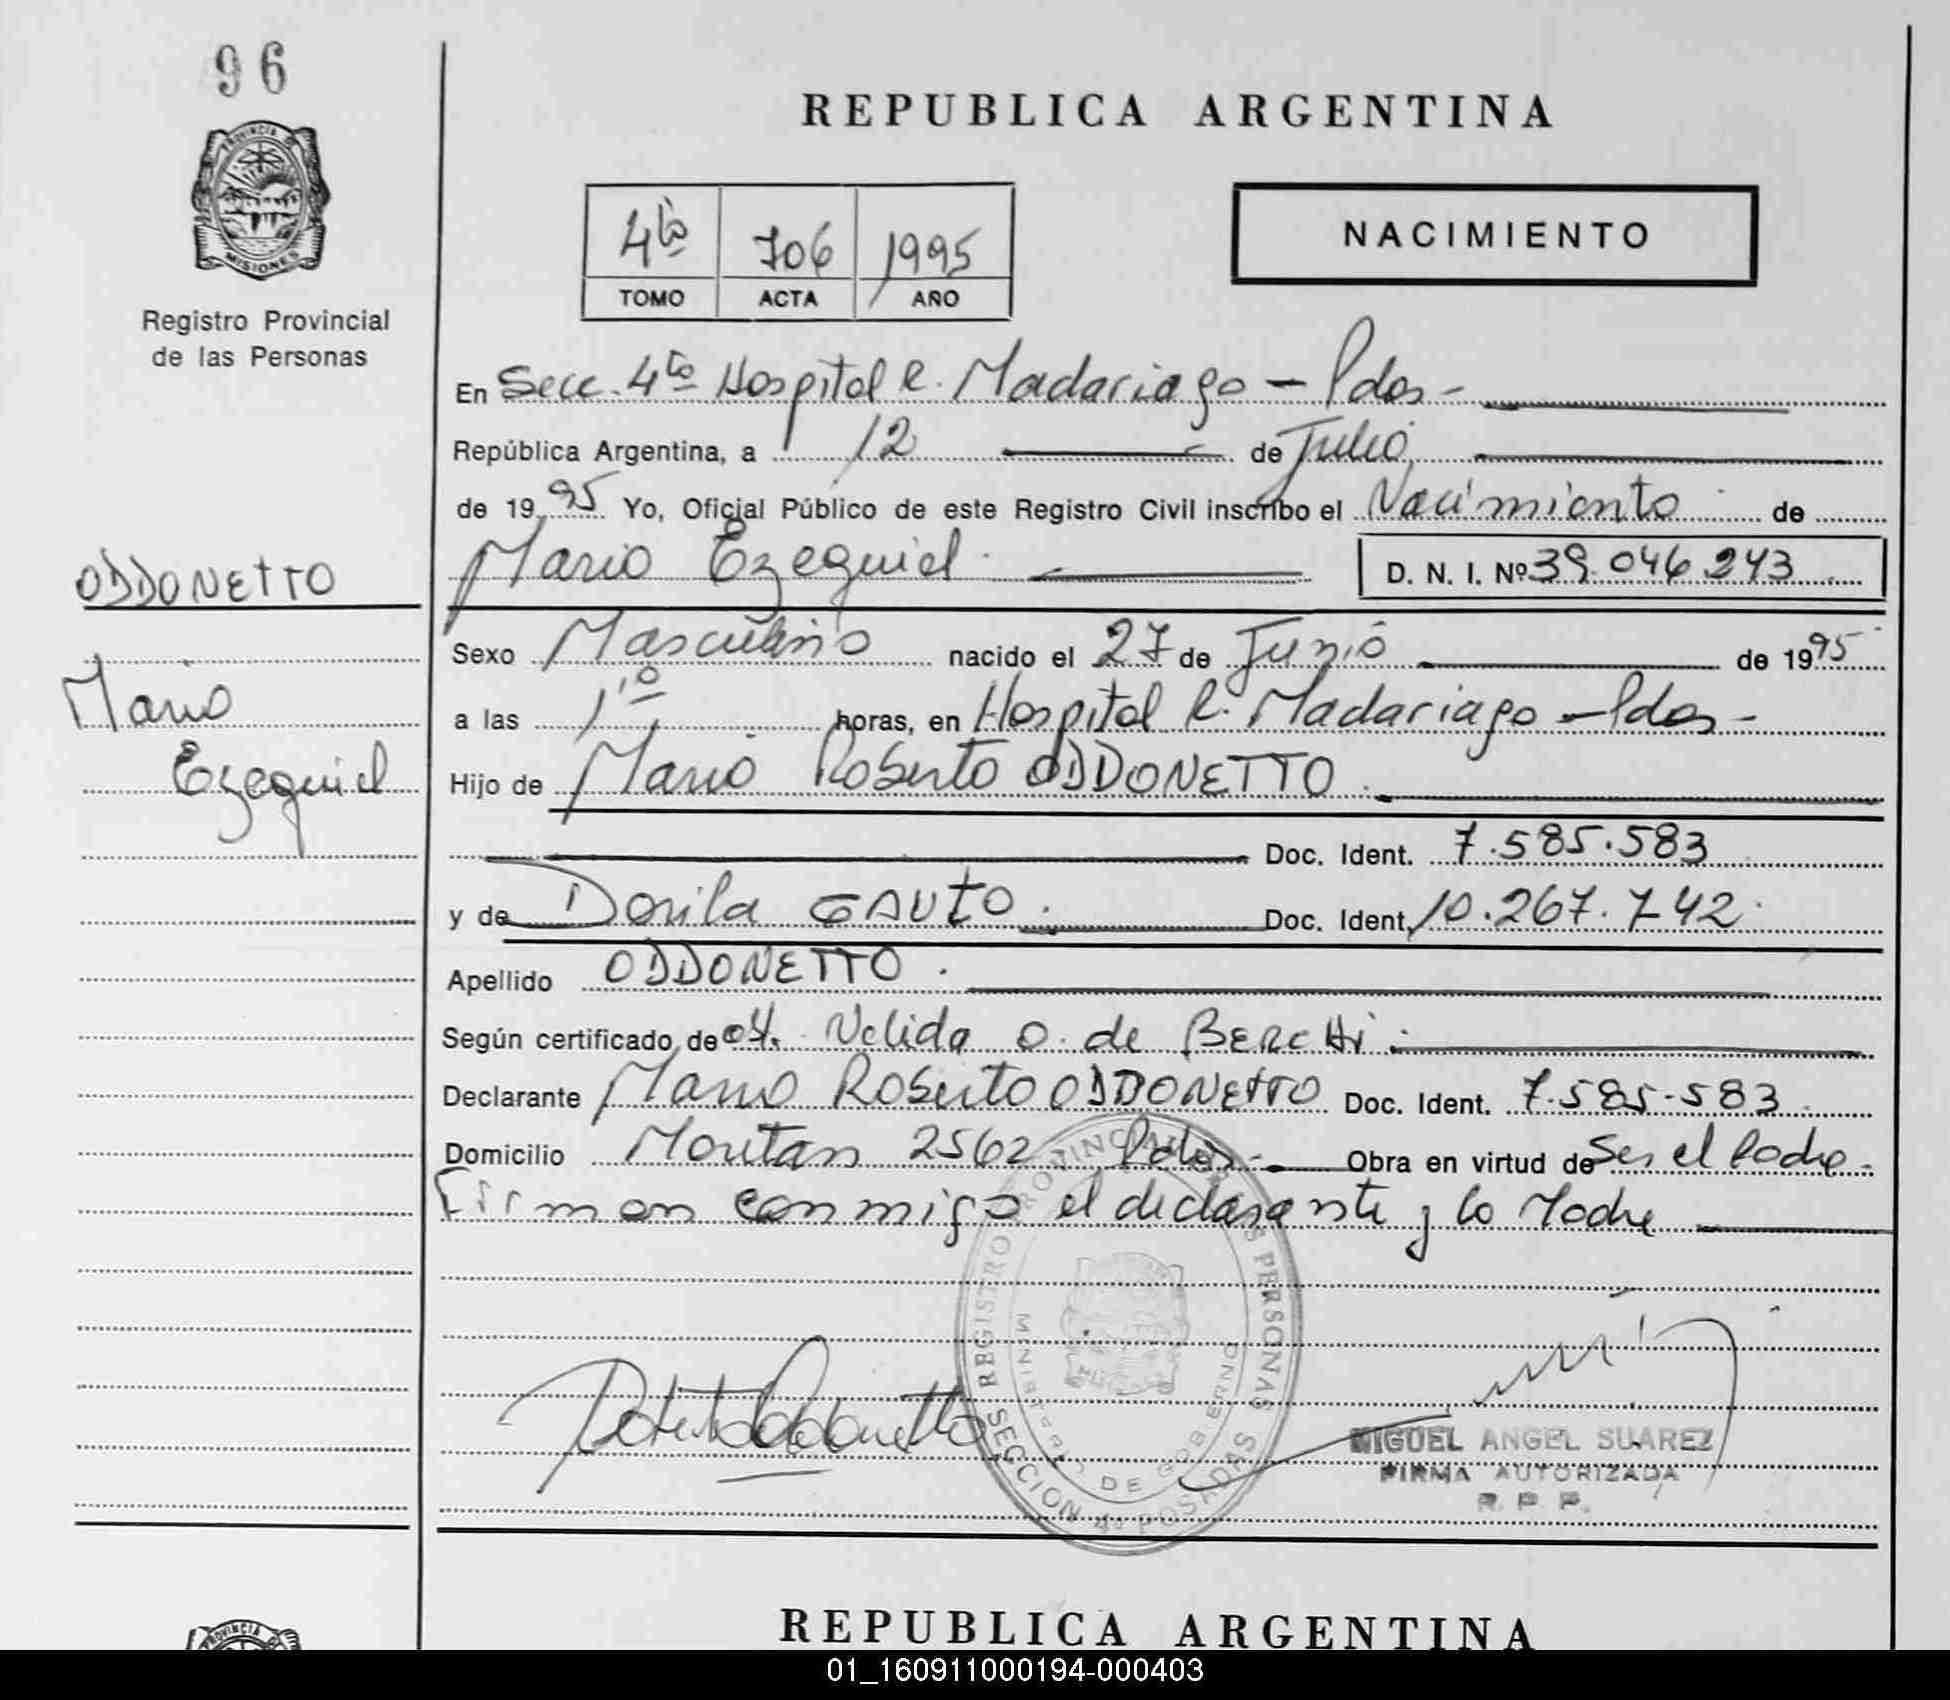 96
PROVINCIA
MISIONES
Registro Provincial
de las Personas
ODDONETTO
Mario
Ezequiel
REPUBLICA ARGENTINA
4to 706 1995
TOMO ACTA AÑO
NACIMIENTO
En Secc. 4ta Hospital R. Madariaga – Pdas –
República Argentina, a 12 de Julio
de 1995 Yo, Oficial Público de este Registro Civil inscribo el Nacimiento de
Mario Ezequiel D. N. I. Nº 39.046.243
Sexo Masculino nacido el 27 de Junio de 1995
a las horas, en Hospital R. Madariaga – Pdas –
Hijo de Mario Roberto ODDONETTO
Doc. Ident. 7.585.583
y de Dorila GAUTO. Doc. Ident. 10.267.742
Apellido ODDONETTO.
Según certificado de Velida O. de BERCHI
Declarante Mario Roberto ODDONETTO Doc. Ident. 7.585.583
Domicilio 2562 Pdas – Obra en virtud de Ser el Padre.
Firman conmigo el declarante y la Madre
REGISTRO PROVINCIAL DE LAS PERSONAS
MINISTERIO DE GOBIERNO
SECCION 4ª POSADAS
MIGUEL ANGEL SUAREZ
FIRMA AUTORIZADA
R. P. P.
PROVINCIA
REPUBLICA ARGENTINA
01_160911000194-000403